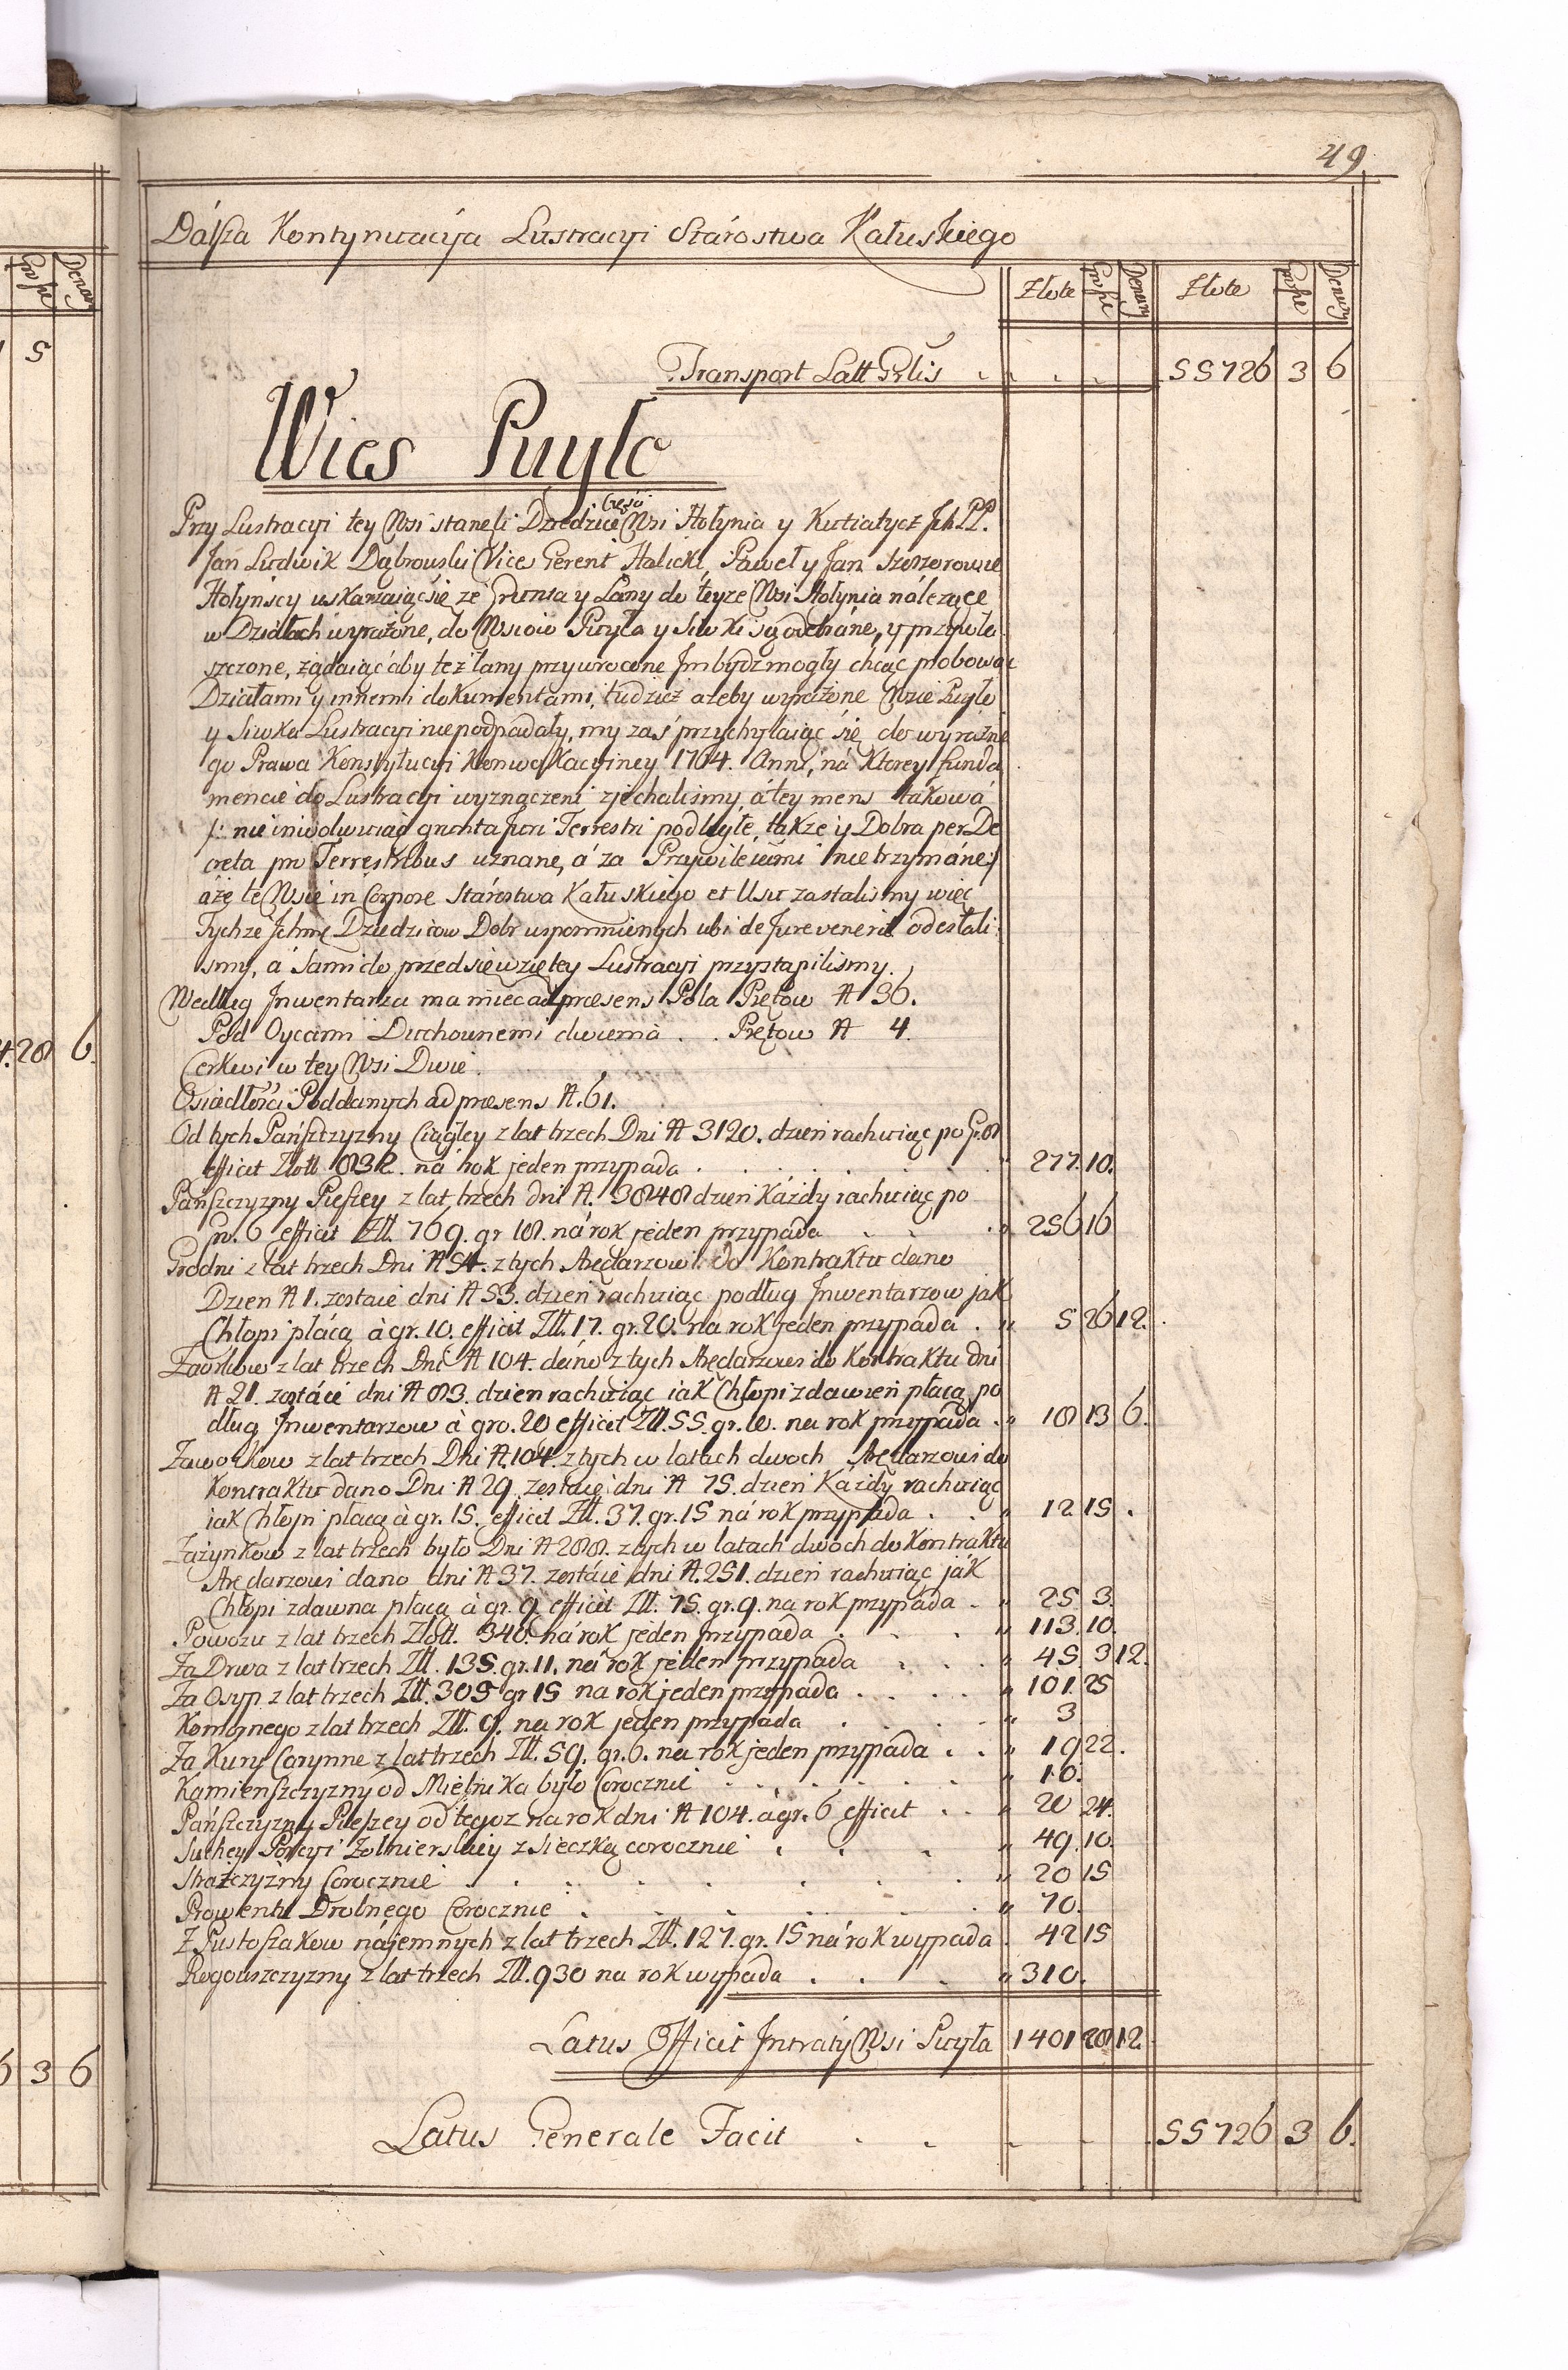 49
Dálsza Kontynuacyja Lustracyi Stárostwa Kałuskiego
Złote Grosze Denary Złote Grosze Denary
Transport Latt Gñlis . . . . 55726 3 6
Wies Puyło
Części
Przy Lustracyi tey Wsi staneli Dziedzice Wsi Hołynia y Kutiatycz Jch PP.
Jan Ludwik Dąbrowski Vice Gerent Halicki, Paweł y Jan
Hołynscy uskarzaiąc się ze Grunta y Łany do teyze Wsi Hołynia nálezące
w Działach wyrażone, do Wsiow Puyła y Siwki są odebráne, y przywła
szczone, żądaiąc áby też łany przywrocone Jm bydz mogły chcąc probowac
Działami y innemi dokumentami, tudziez ażeby wyrażone Wsie Puyło
y Siwka Lustracyi niepodpadały, my zaś przychylaiąc się do wyrażne
go Prawa Konstytucyi Konwokacyiney 1764. Anni, ná Ktorey funda
mencie do Lustracyi wyznaczeni zjechalismy, á tey mens takowá
/: nie inwolwuiąc grunta Juri Terrestri podległe, także y Dobra per De
creta pro Terrestribus uznane, á za Przywileiámi nie trzymáne :/
áże te Wsie in Corpore Stárostwa Kałuskiego et Usu zastalismy więc
Tychze Jchmc Dziedzicow Dobr wspomnionych ubi de Jure venerit odesłali
smy, á sami do przedsięwziętey Lustracyi przystąpilismy.
Według Jnwentarza ma miec ad præsens Pola Prętow N 36.
Pod Oycami Duchownemi dwiema . . Prętow N 4.
Cerkwi w tey Wsi Dwie.
Osiadłości Poddanych ad præsens N. 61.
Od tych Pańszczyzny Ciągłey z lat trzech Dni N 3120. dzień rachuiąc po gr. 8
efficit Złott 832. ná rok jeden przypada . . . . . " 277. 10.
Pańszczyzny Pieszey z lat trzech dni N. 3848 dzień Káżdy rachuiąc po
gr. 6 efficit Złł. 769. gr 18. ná rok jeden przypada . . " 256 16
Grodni z lat trzech Dni N 54. z tych Arędarzowi do Kontraktu dano
Dzien N 1. zostaie dni N 53. dzień rachuiąc podług Jnwentarzow jak
Chłopi płácą à gr. 10. efficit Złł. 17. gr. 20. na rok jeden przypada . " 5 26 12.
Zaorkow z lat trzech Dni N 104. dáno z tych Arędarzowi do Kontraktu dni
N 21. zostáie dni N 83. dzien rachuiąc iak Chłopi zdawień płacą po
dług Jnwentarzow à gro. 20 efficit Złł. 55. gr. 10. na rok przypáda . " 18 13 6.
Zawołkow z lat trzech Dni N. 104. z tych w latach dwoch Arędarzowi do
Kontraktu dano Dni N 29. zostaie dni N 75. dzień Káżdy rachuiąc
iak Chłopi płacą à gr. 15. efficit Złł. 37. gr. 15 ná rok przypada . . " 12 15 .
Zażynkow z lat trzech było Dni N 288. z tych w latach dwoch do Kontraktu
Arędarzowi dano dni N 37. zostáie dni N. 251. dzień rachuiąc ják
Chłopi zdawna płacą à gr. 9. efficit Złł. 75. gr. 9. na rok przypáda . " 25 3.
Powozu z lat trzech Złott. 340. ná rok jeden przypada . . . " 113. 10.
Za Drwa z lat trzech Złł. 135. gr. 11. ná rok jeden przypada . . . " 45. 3 12.
Za Osyp z lat trzech Złł. 305 gr 15 na rok jeden przypada . . . . " 101. 25
Komornego z lat trzech Złł. 9. na rok jeden przypada . . . . " 3
Za Kury Corynne z lat trzech Złł. 59. gr. 6. na rok jeden przypáda . . " 19 22.
Kamienszczyzny od Mielnika było Corocznie . . . . . " 10.
Pańszczyzny Pieszey od tegoz na rok dni N 104. à gr. 6 efficit . . " 20 24.
Suchey Porcyi Zołnierskiey z Sieczką corocznie . . . " 49. 10.
Strażczyzny Corocznie . . . . . . " 20 15
Prowentu Drobnego Corocznie . . . . " 70.
Z Pustosiakow nájemnych z lat trzech Złł. 127. gr. 15 ná rok wypada . 42 15
Rogowszczyzny z lat trzech Złł. 930 na rok wypada . . . " 310.
Latus Efficit Jntraty Wsi Puyła 1401 28 12.
Latus Generale Facit . . . . 55726 3 6.